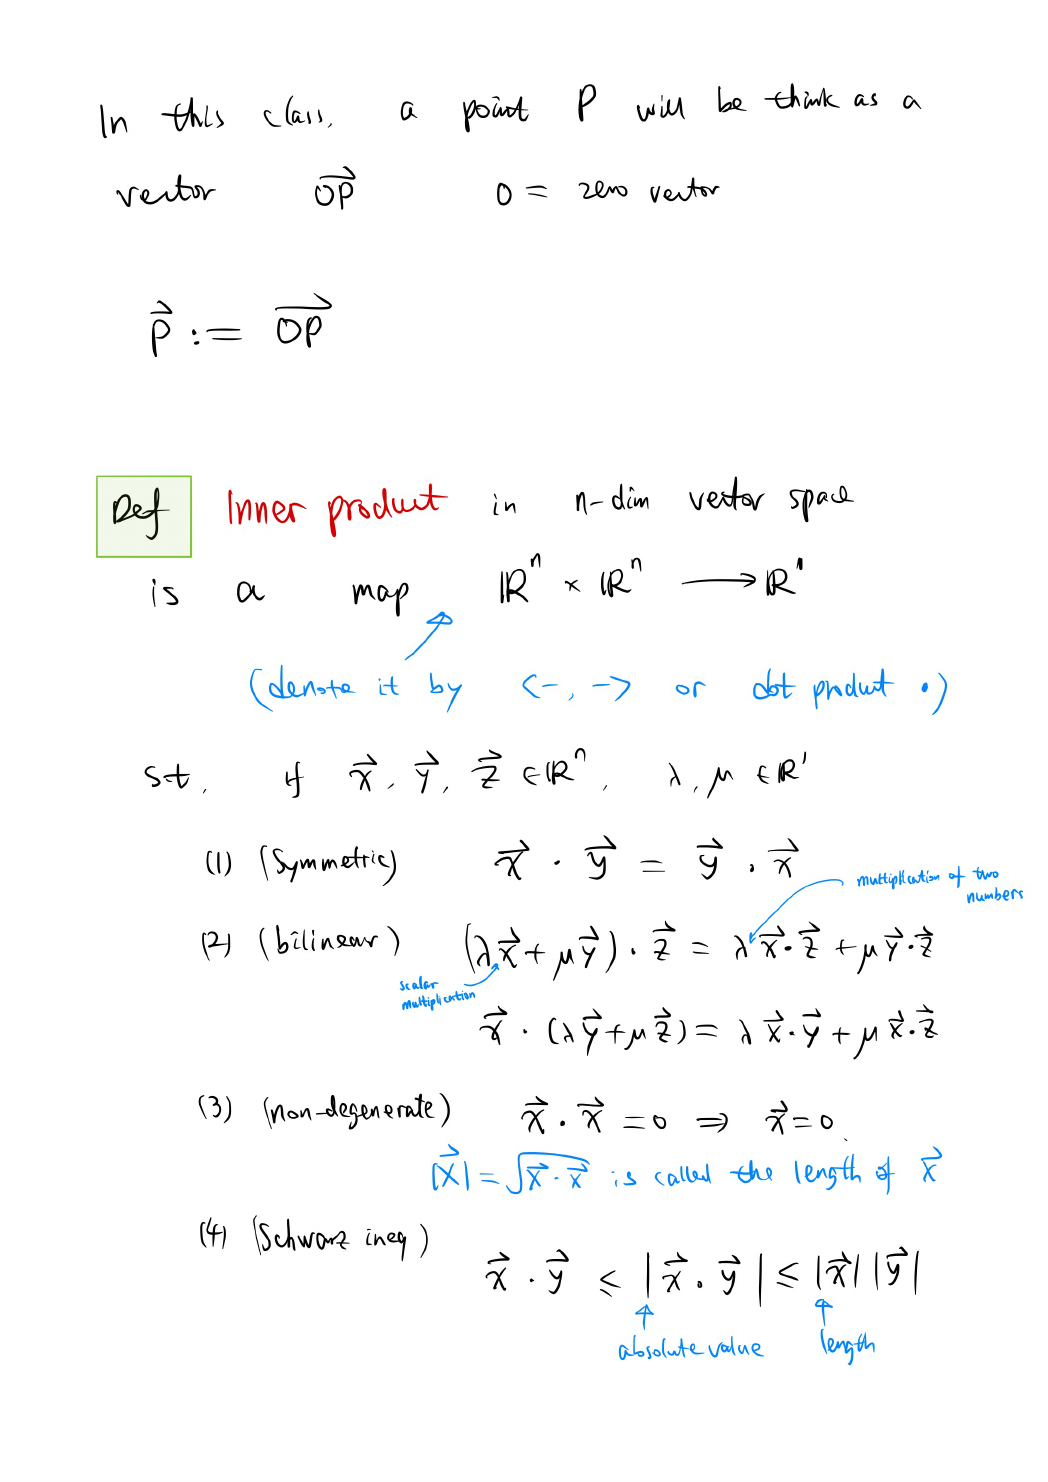 In this class, a point P will be think as a
vector $\overrightarrow{OP}$ 0 = zero vector
$\vec{P} := \overrightarrow{OP}$
Def Inner product in n-dim vector space
is a map $\mathbb{R}^n \times \mathbb{R}^n \longrightarrow \mathbb{R}^1$
(denote it by <-, -> or dot product •)
st. if $\vec{x}, \vec{y}, \vec{z} \in \mathbb{R}^n$, $\lambda, \mu \in \mathbb{R}^1$
(1) (Symmetric) $\vec{x} \cdot \vec{y} = \vec{y} \cdot \vec{x}$
multiplication of two
numbers
(2) (bilinear) $(\lambda\vec{x} + \mu\vec{y}) \cdot \vec{z} = \lambda\vec{x} \cdot \vec{z} + \mu\vec{y} \cdot \vec{z}$
scalar
multiplication
$\vec{x} \cdot (\lambda\vec{y} + \mu\vec{z}) = \lambda\vec{x} \cdot \vec{y} + \mu\vec{x} \cdot \vec{z}$
(3) (non-degenerate) $\vec{x} \cdot \vec{x} = 0 \Rightarrow \vec{x} = 0$.
$|\vec{x}| = \sqrt{\vec{x} \cdot \vec{x}}$ is called the length of $\vec{x}$
(4) (Schwarz ineq)
$\vec{x} \cdot \vec{y} \leq |\vec{x} \cdot \vec{y}| \leq |\vec{x}| |\vec{y}|$
absolute value length